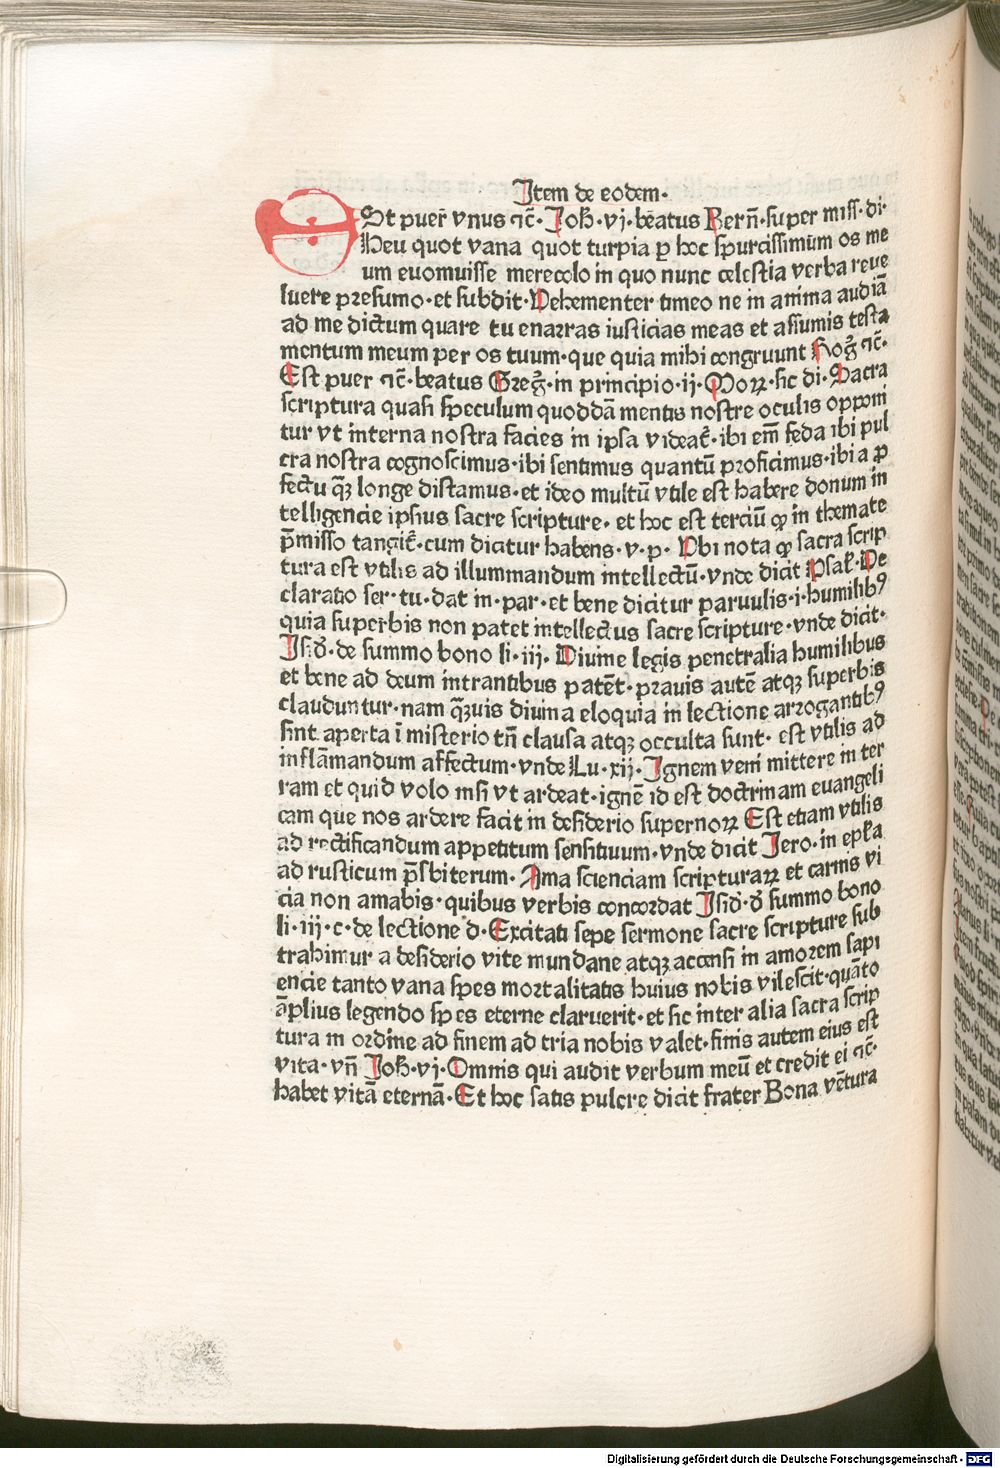 Item de eodem·
ESt puer̄ vnus ⁊c̄· Joh̄·vj·beatus Bern̄·super miss̄·di·
Heu quot vana quot turpia ꝑ hoc spurcissimum os me
um euomuisse merecolo in quo nunc celestia verba reue
luere presumo·et subdit·Vehementer timeo ne in anima audiā
ad me dictum quare tu enarras iusticias meas et assumis testa
mentum meum per os tuum·que quia mihi congruunt Rog̃ ⁊c̄·
Est puer ⁊c̄·beatus Greg̃·in principio·ij·Moꝝ·sic di·Sacra
scriptura quasi speculum quoddā mentis nostre oculis opponi
tur vt interna nostra facies in ipsa videat̃·ibi em̄ feda ibi pul
cra nostra cognoscimus·ibi sentimus quantū proficimus·ibi a ꝓ
fectu q̄ꝫ longe distamus·et ideo multū vtile est habere donum in
telligencie ipsius sacre scripture·et hoc est terciū ꝙ in themate
p̄misso tangit̃·cum dicitur habens·v·p· Vbi nota ꝙ sacra scrip
tura est vtilis ad illuminandum intellectū·vnde dicit Psal̃·De
claratio ser·tu·dat in·par·et bene dicitur paruulis·i·humilibꝰ
quia superbis non patet intellectus sacre scripture·vnde dicit·
Jsid̄·de summo bono li·iij·Diuine legis penetralia humilibus
et bene ad deum intrantibus patēt·prauis autē atqꝫ superbis
clauduntur·nam q̄ꝫuis diuina eloquia in lectione arrogantibꝰ
sint aperta ī misterio tn̄ clausa atqꝫ occulta sunt·est vtilis ad
inflāmandum affectum·vnde Lu·xij·Ignem veni mittere in ter
ram et quid volo nisi vt ardeat·ignē id est doctrinam euangeli
cam que nos ardere facit in desiderio supernoꝝ Est etiam vtilis
ad rectificandum appetitum sensitiuum·vnde dicit Jero·in epl̃a
ad rusticum p̄sbiterum· Ama scienciam scripturaꝝ et carnis vi
cia non amabis·quibus verbis concordat Jsid̄·d̄ summo bono
li·iij·c·de lectione d·Excitati sepe sermone sacre scripture sub
trahimur a desiderio vite mundane atqꝫ accensi in amorem sapi
encie tanto vana spes mortalitatis huius nobis vilescit·quāto
āplius legendo spes eterne claruerit·et sic inter alia sacra scrip
tura in ordine ad finem ad tria nobis valet·finis autem eius est
vita·vn̄ Joh̄·vj·Omnis qui audit verbum meū et credit ei ⁊c̄·
habet vitā eternā·Et hoc satis pulcre dicit frater Bona vētura
Digitalisierung gefördert durch die Deutsche Forschungsgemeinschaft - DFG